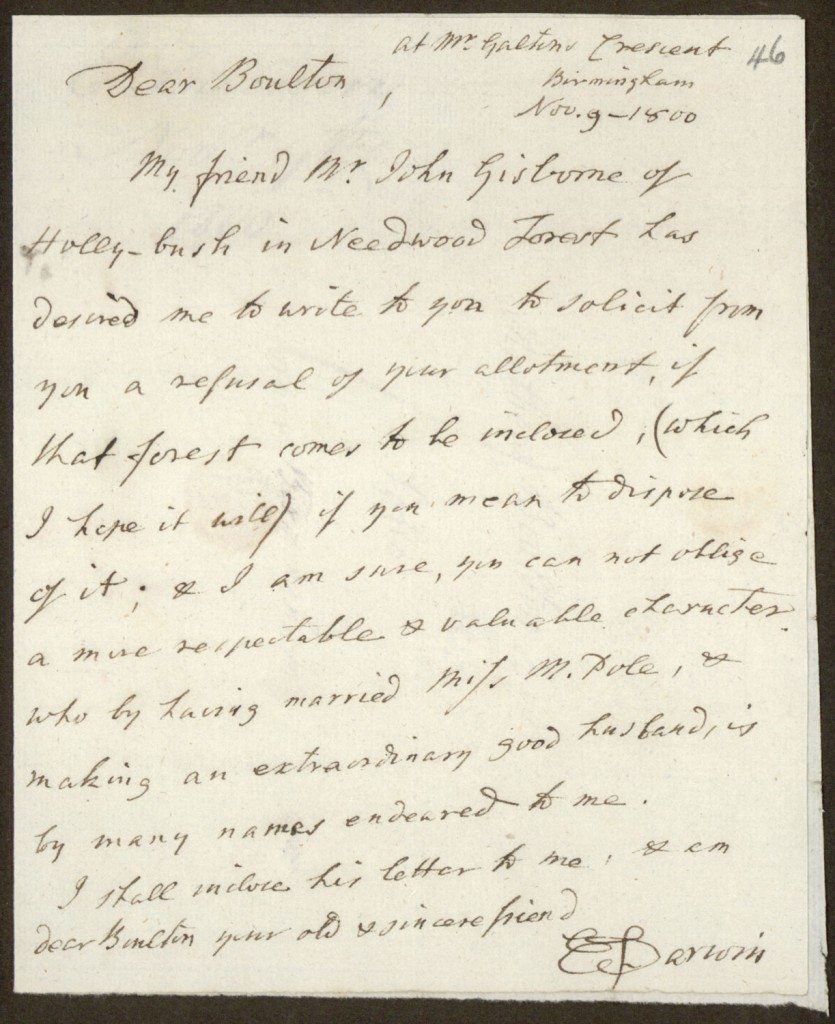 at Mr. Galtons Crescent
46
Birmingham
Dear Boulton,
Nov. 9 - 1800
My friend Mr. John Gisborne of
Holly-bush in Needwood Forest has
desired me to write to you to solicit from
you a refusal of your allotment, if
that forest comes to be inclosed, (which
I hope it will) if you mean to dispose
of it; & I am sure, you can not oblige
a more respectable & valuable character.
who by having married Miss M. Pole, &
making an extraordinary good husband, is
by many names endeared to me.
I shall inclose his letter to me, & am
dear Boulton your old & sincere friend
E Darwin